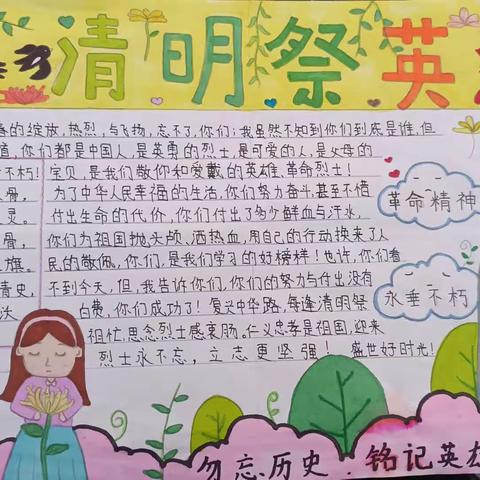 清明祭英
春的绽放,热烈,与飞扬,忘不了,你们;我虽然不知到你们到底是谁,但
道,你们都是中国人,是英勇的烈士,是可爱的人,是父母的
不朽!宝贝,是我们敬仰和爱戴的英雄,革命烈士!
骨,为了中华人民幸福的生活,你们努力奋斗,甚至不惜
灵。付出生命的代价,你们付出了多少鲜血与汗水,
骨,你们为祖国抛头颅,洒热血,用自己的行动换来了人
旗。民的敬佩,你们,是我们学习的好榜样!也许,你们看
青史,不到今天,但,我告诉你们,你们的努力与付出没有
沃 白费,你们成功了!复兴中华路,每逢清明祭
祖忙,思念烈士感衷肠。仁义忠孝是祖国,迎来
烈士永不忘,立志更坚强!盛世好时光!
革命精神
永垂不朽
勿忘历史 铭记英雄